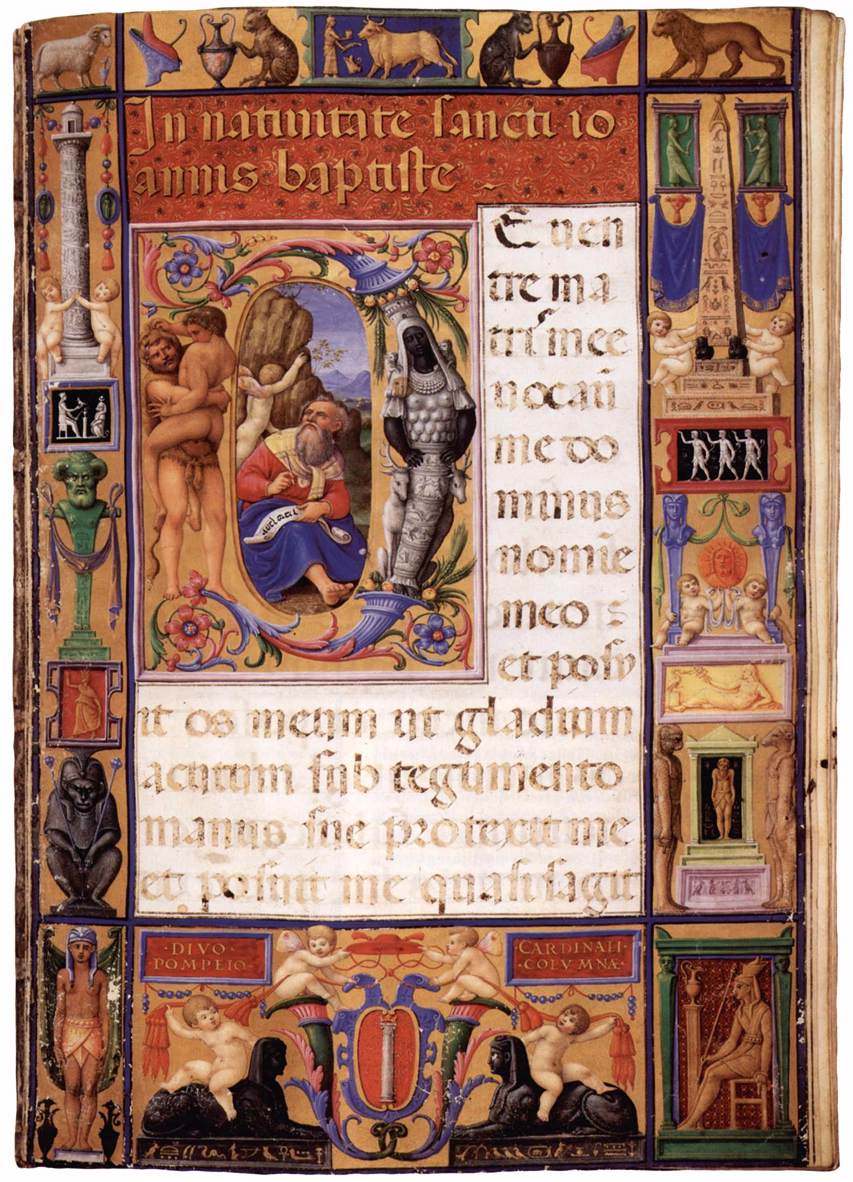 In natiuitate sancti io
annis baptiste
E uen
tre ma
tris mee
uocaũ
me do
minus
nomīe
meo :
et posu
it os meum ut gladium
acutum sub tegumento
manus sue protexit me
et posuit me quasi sagit
·DIVO·
POMPEIO·
CARDINALI·
·COLVMNÆ·